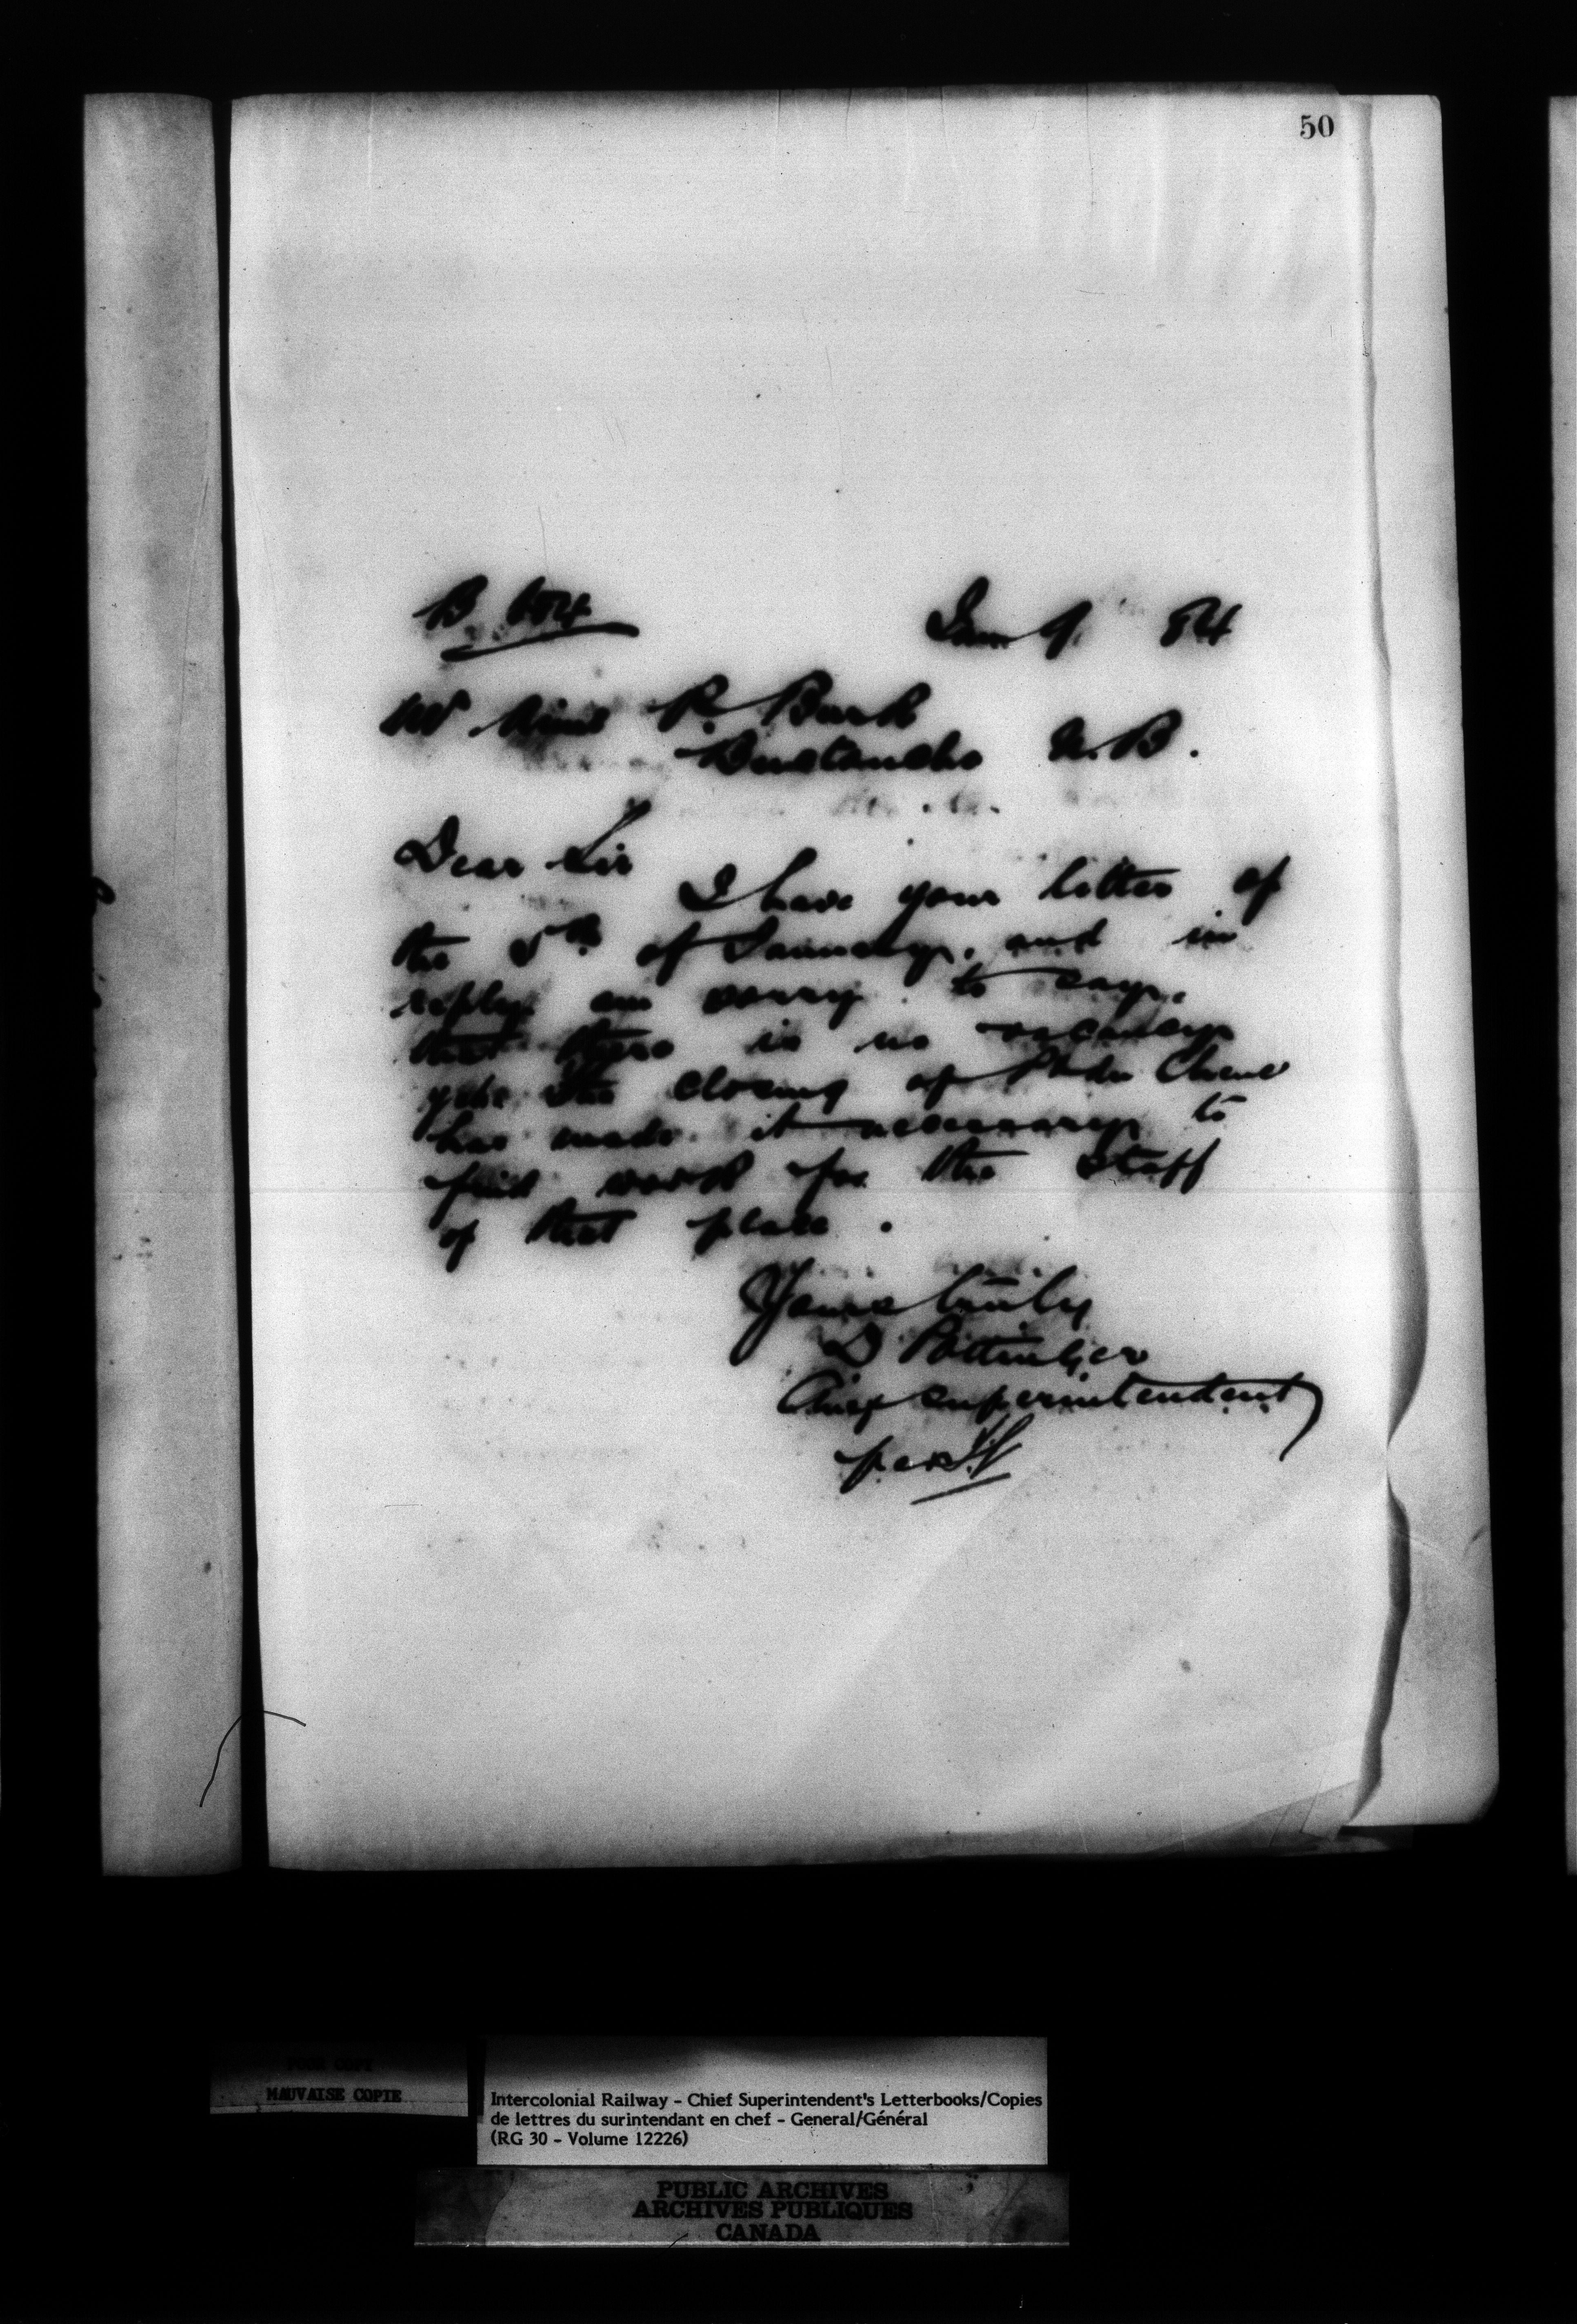 50
B 654
Jan 9 84
R. Burk
Buctouche N.B.
Dear Sir
I have your letter of
the 5th of January, and in
reply am sorry to say,
that there is no vacancy
yet. The closing of Pt du Chene
has made it necessary to
find work for the staff
of that place.
Yours truly
D Pottinger
Chief Superintendent
per
POOR COPY
MAUVAISE COPIE
Intercolonial Railway - Chief Superintendent's Letterbooks/Copies
de lettres du surintendant en chef - General/Général
(RG 30 - Volume 12226)
PUBLIC ARCHIVES
ARCHIVES PUBLIQUES
CANADA